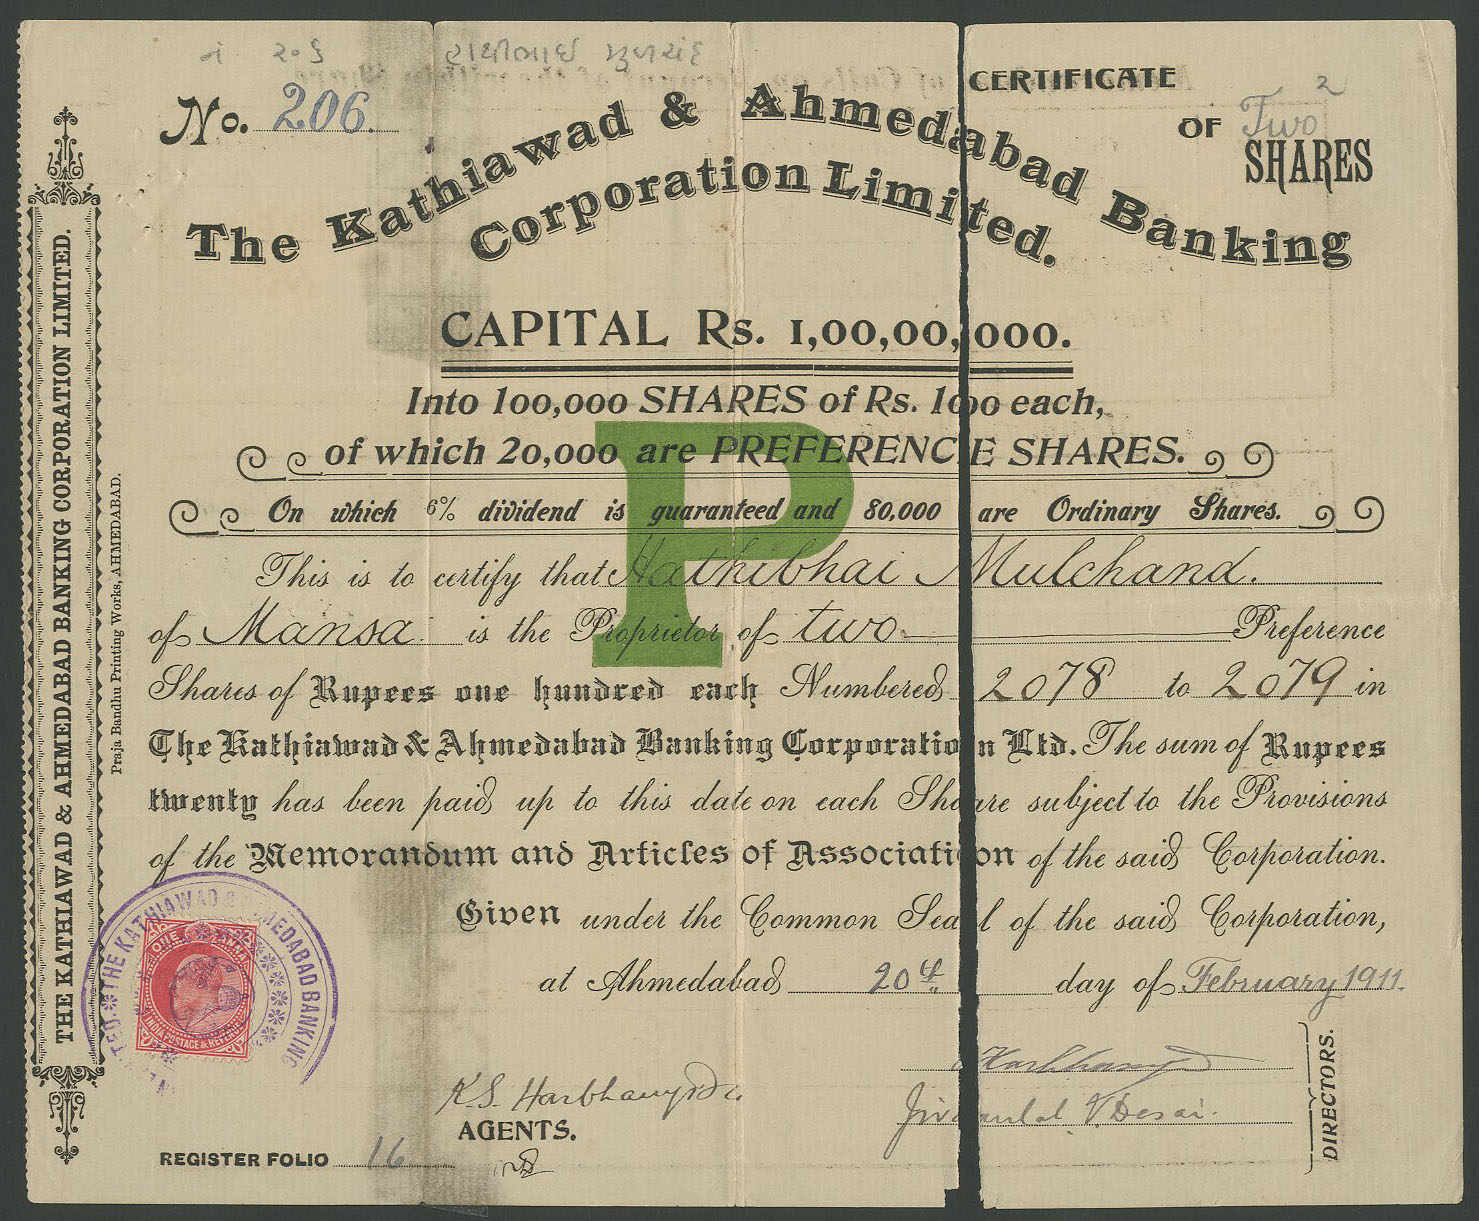 નં ૨૦૬ હાથીભાઈ મુળચંદ
No. 206.
CERTIFICATE
OF Two 2
SHARES
The Kathiawad & Ahmedabad Banking
Corporation Limited.
CAPITAL Rs. 1,00,00,000.
Into 100,000 SHARES of Rs. 100 each,
of which 20,000 are PREFERENCE SHARES.
On which 6% dividend is guaranteed and 80,000 are Ordinary Shares.
P
This is to certify that Hathibhai Mulchand.
of Mansa is the Proprietor of two Preference
Shares of Rupees one hundred each Numbered 2078 to 2079 in
The Kathiawad & Ahmedabad Banking Corporation Ltd. The sum of Rupees
twenty has been paid up to this date on each Share subject to the Provisions
of the Memorandum and Articles of Association of the said Corporation.
Given under the Common Seal of the said Corporation,
at Ahmedabad 20th day of February 1911.
THE KATHIAWAD & AHMEDABAD BANKING
ONE ANNA
INDIA POSTAGE & REVENUE
K. S. Harbhamji
AGENTS.
Harbhamji
Jivanlal V. Desai.
DIRECTORS.
REGISTER FOLIO 16
THE KATHIAWAD & AHMEDABAD BANKING CORPORATION LIMITED.
Praja Bandhu Printing Works, AHMEDABAD.